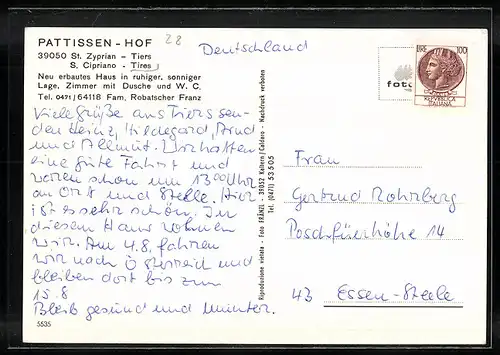 PATTISSEN - HOF
28
39050 St. Zyprian - Tiers
S. Cipriano - Tires
Neu erbautes Haus in ruhiger, sonniger
Lage. Zimmer mit Dusche und W. C.
Tel. 0471/64118 Fam. Robatscher Franz
Deutschland
Viele grüße aus Tiers sen-
den Heinz, Hildegard,
und Wir hatten
eine gute Fahrt und
waren schon um 13⁰⁰ Uhr
an Ort und Stelle. Hier
ist es sehr schön. In
diesem Haus wohnen
wir. Am 4.8. fahren
wir nach Österreich und
bleiben dort bis zum
15.8
Bleib gesund und munter.
5535
Riproduzione vietata - Foto FRÄNZL - 39052 Kaltern/Caldaro - Nachdruck verboten
Tel. (0471) 53505
foto
LIRE 100
REPVBBLICA
ITALIANA
Frau
Gertrud Rohrberg
Poschfürhöhe 14
43 Essen-Steele